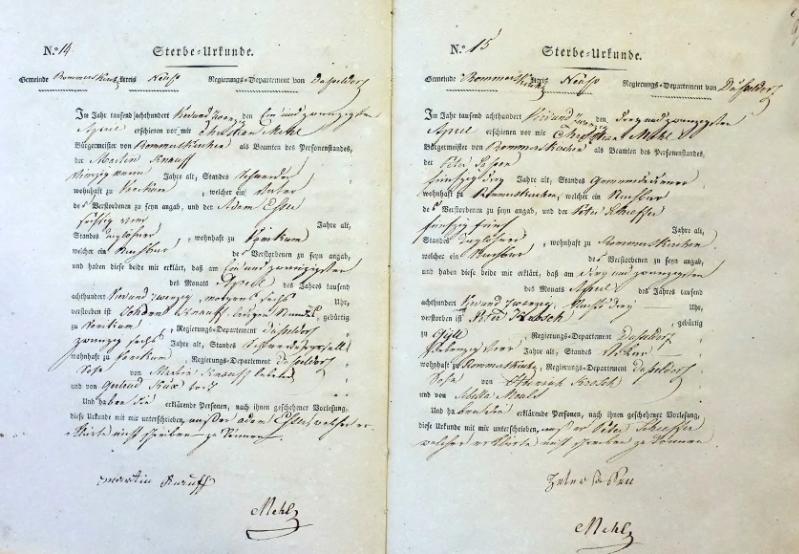 N.º 14
Sterbe-Urkunde.
Gemeinde Rommerskirchen Kreis Neuss Regierungs-Departement von Düsseldorf
Im Jahr tausend achthundert Vierund zwanzig den Ein und zwanzigsten
April erschienen vor mir Christian Mehl
Bürgermeister von Rommerskirchen als Beamten des Personenstandes,
der Martin Knauff
vierzig neun Jahre alt, Standes
wohnhaft zu , welcher ein Vater
des Verstorbenen zu seyn angab, und der Adam Esser
Jahre alt,
Standes Taglöhner , wohnhaft zu
welcher ein Nachbar des Verstorbenen zu seyn angab,
und haben diese beide mir erklärt, daß am Ein und zwanzigsten
des Monats April des Jahres tausend
achthundert Vierund zwanzig, morgens sechs Uhr,
verstorben ist Johann Knauff , gebürtig
zu , Regierungs-Departement Düsseldorf
zwanzig sechs Jahre alt, Standes
wohnhaft zu , Regierungs-Departement Düsseldorf
Sohn von Martin Knauff
und von Gertrud
Und haben die erklärende Personen, nach ihnen geschehener Vorlesung,
diese Urkunde mit mir unterschrieben, außer Adam Esser welcher er-
klärte nicht schreiben zu können
Martin Knauff
Mehl
N.º 15
Sterbe-Urkunde.
Gemeinde Rommerskirchen Kreis Neuss Regierungs-Departement von Düsseldorf
Im Jahr tausend achthundert Vierund zwanzig den Drey und zwanzigsten
April erschienen vor mir Christian Mehl
Bürgermeister von Rommerskirchen als Beamten des Personenstandes,
der Peter
fünfzig drey Jahre alt, Standes Gemeindediener
wohnhaft zu Rommerskirchen, welcher ein Nachbar
des Verstorbenen zu seyn angab, und der Peter Schieffer
fünfzig fünf Jahre alt,
Standes Taglöhner , wohnhaft zu Rommerskirchen
welcher ein Nachbar des Verstorbenen zu seyn angab,
und haben diese beide mir erklärt, daß am Drey und zwanzigsten
des Monats April des Jahres tausend
achthundert Vierund zwanzig, drey Uhr,
verstorben ist Peter Krosch , gebürtig
zu , Regierungs-Departement Düsseldorf
Jahre alt, Standes Ackerer
wohnhaft zu Rommerskirchen, Regierungs-Departement Düsseldorf
Sohn von Krosch
und von
Und haben die erklärende Personen, nach ihnen geschehener Vorlesung,
diese Urkunde mit mir unterschrieben, außer Peter Schieffer
welcher erklärte nicht schreiben zu können
Mehl